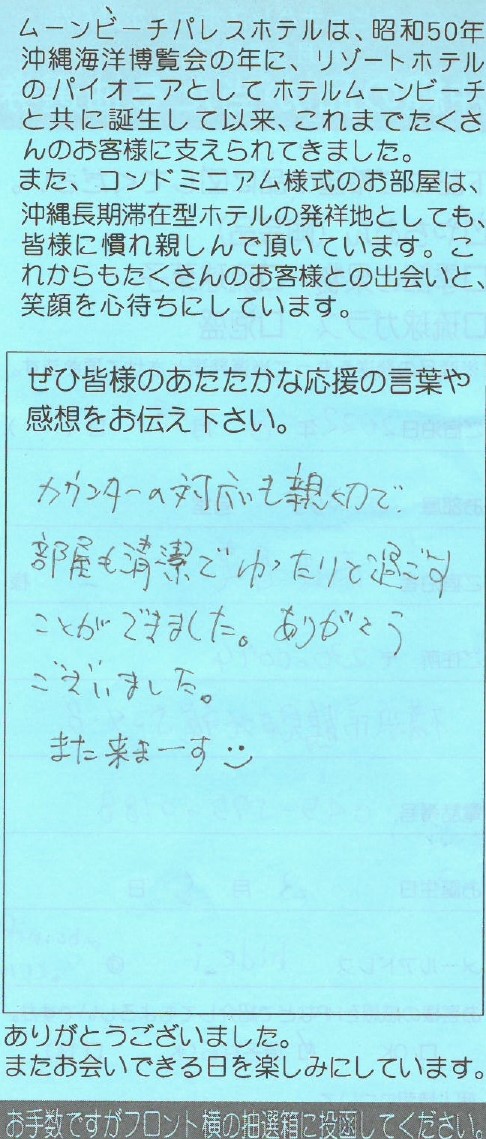 ムーンビーチパレスホテルは、昭和50年
沖縄海洋博覧会の年に、リゾートホテル
のパイオニアとしてホテルムーンビーチ
と共に誕生して以来、これまでたくさ
んのお客様に支えられてきました。
また、コンドミニアム様式のお部屋は、
沖縄長期滞在型ホテルの発祥地としても、
皆様に慣れ親しんで頂いています。こ
れからもたくさんのお客様との出会いと、
笑顔を心待ちにしています。
ぜひ皆様のあたたかな応援の言葉や
感想をお伝え下さい。
カウンターの対応も親切で
部屋も清潔でゆったりと過ごす
ことができました。ありがとう
ございました。
また来まーす
ありがとうございました。
またお会いできる日を楽しみにしています。
お手数ですがフロント横の抽選箱に投函してください。